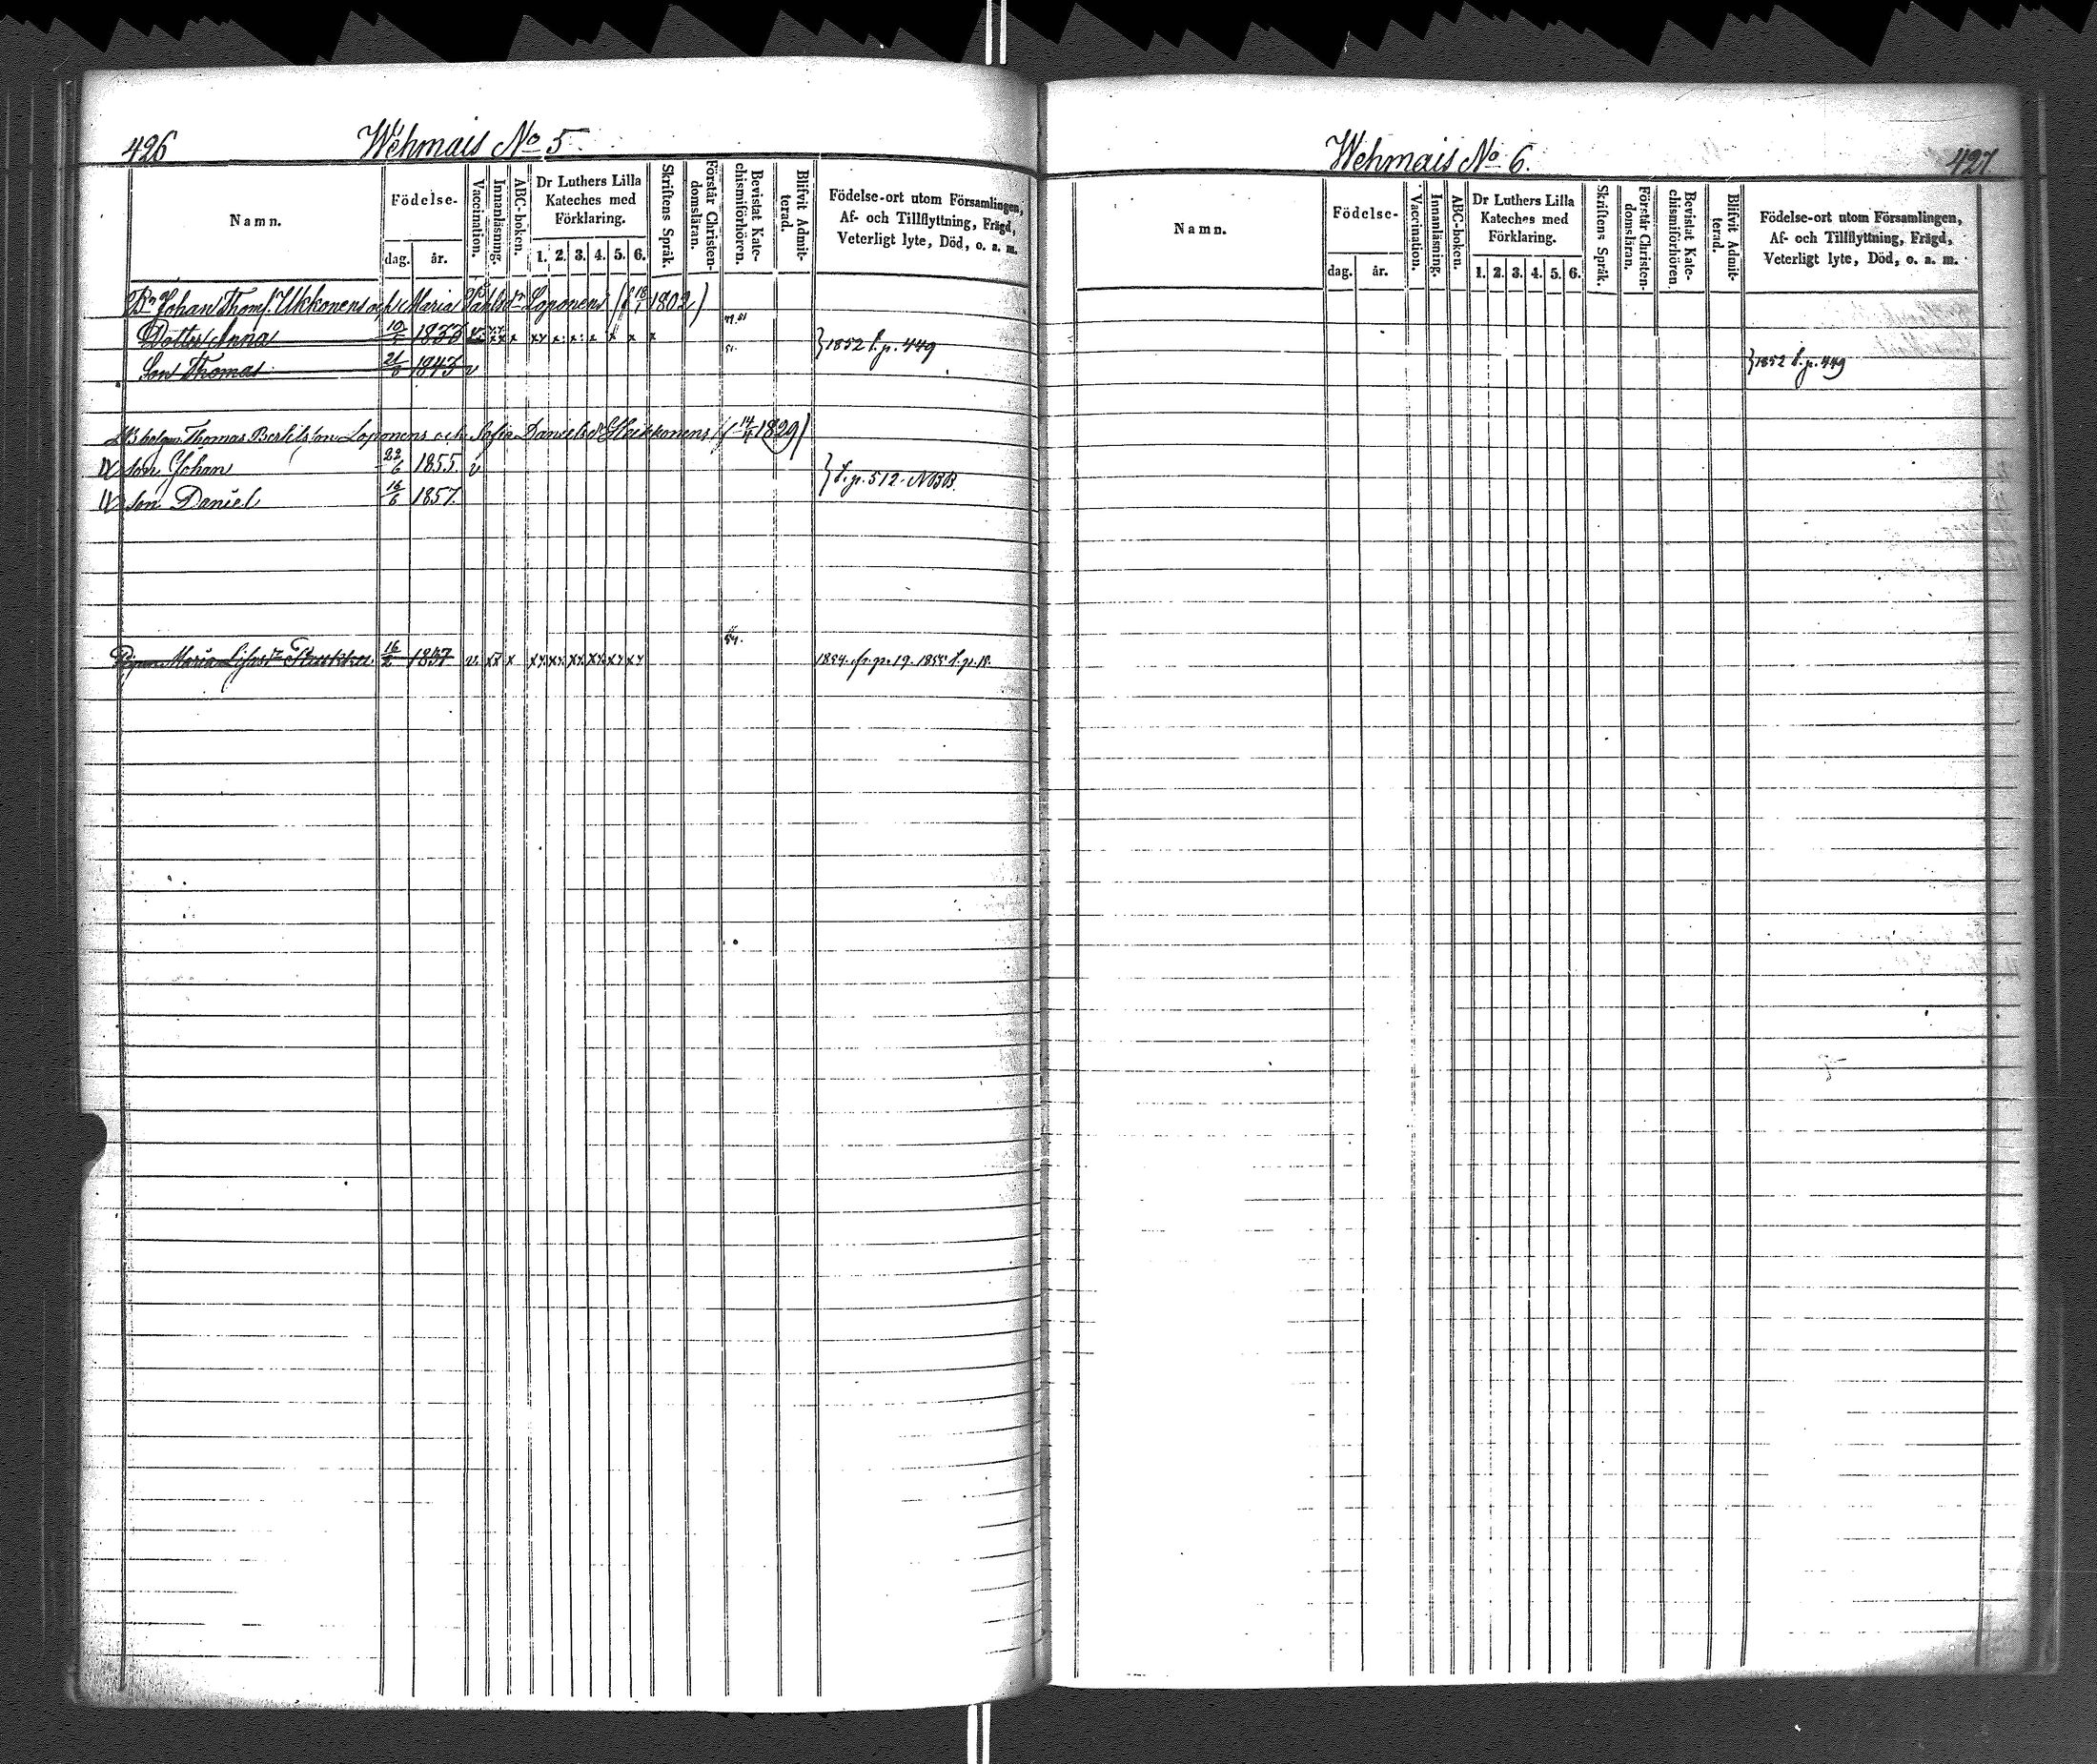 426 Wehmais No 5.
Namn.
Födelse-
dag. år.
Vaccination.
Innanläsning.
ABC-boken.
Dr Luthers Lilla
Kateches med
Förklaring.
1. 2. 3. 4. 5. 6.
Skriftens Språk.
Förstår Christen-
domsläran.
Bevistat Kate-
chismiförhören.
Blifvit Admit-
terad.
Födelse-ort utom Församlingen,
Af- och Tillflyttning, Frägd,
Veterligt lyte, Död, o. a. m.
Johan Thoms. Ukkonens och Maria Loponens (f 18/1 1802)
49.51
Dotter Anna 10/ x x x x x
51.
} 1852 f. p. 449
Son Thomas 21/ v
Thomas Bertilson Loponens och Sofia Daniels dr Heikkonens (f 1829)
IX son Johan 22/6 1855. v
} f. p. 512. NB B.
IX son Daniel 16/6 1857.
54.
Maria 16/2 1837 v xx x xx xx xx xx xx xx 1854. fr. p. 19. 1855 f. p. 18.
Wehmais No 6. 427.
Namn.
Födelse-
dag. år.
Vaccination.
Innanläsning.
ABC-boken.
Dr Luthers Lilla
Kateches med
Förklaring.
1. 2. 3. 4. 5. 6.
Skriftens Språk.
Förstår Christen-
domsläran.
Bevistat Kate-
chismiförhören
Blifvit Admit-
terad.
Födelse-ort utom Församlingen,
Af- och Tillflyttning, Frägd,
Veterligt lyte, Död, o. a. m.
} 1852 f. p. 449